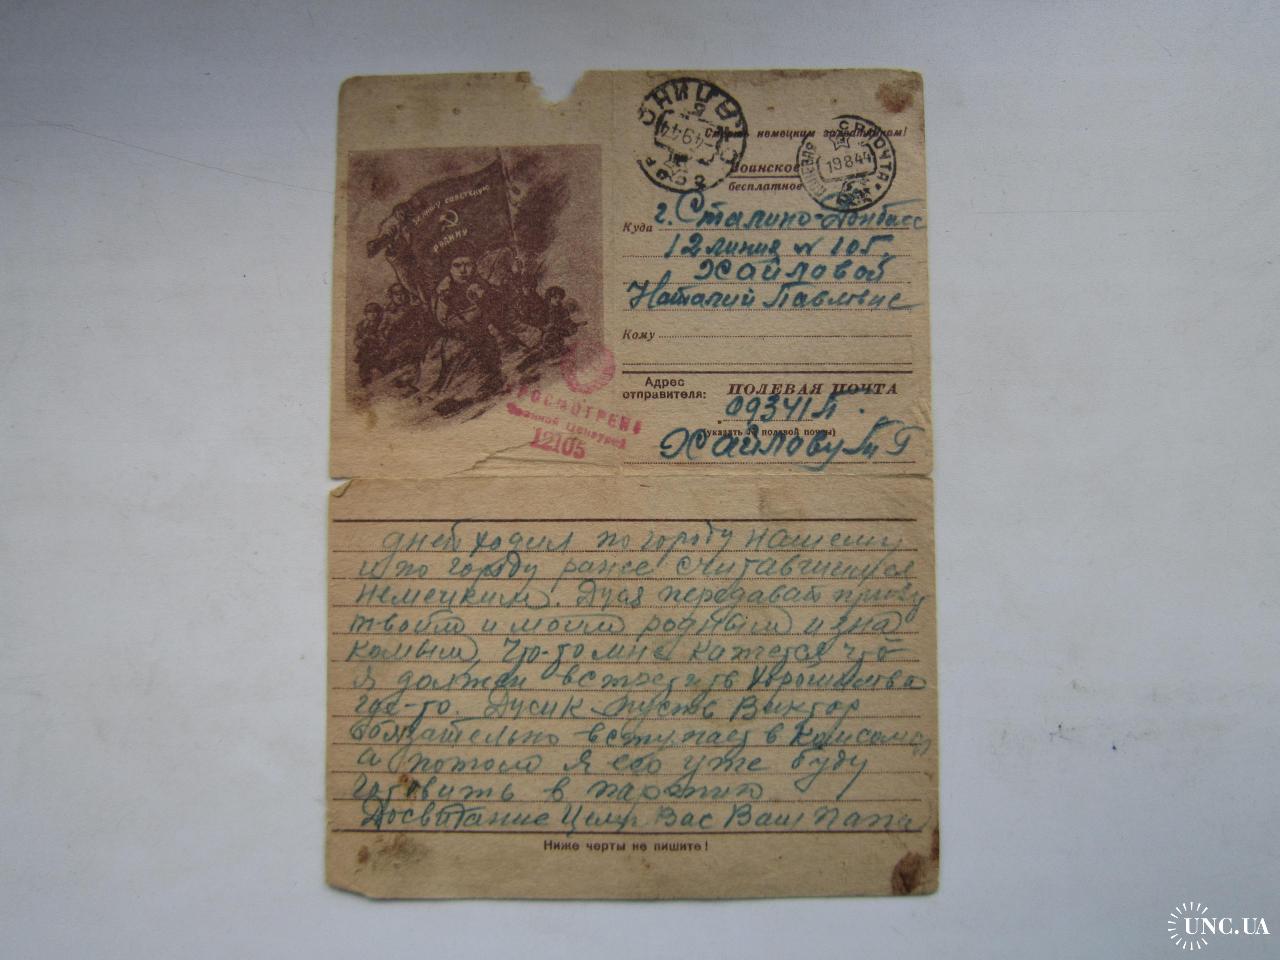 За нашу советскую
родину
Смерть немецким захватчикам!
Воинское
бесплатное
19 8 44
Куда г. Сталино-Донбасс
12 линия № 105
Хайловой
Наталии Павловне
Кому
Адрес отправителя: ПОЛЕВАЯ ПОЧТА
09341
(указать № полевой почты)
Хайлову
ПРОСМОТРЕНО
Военной Цензурой
12105
дней ходил по городу нашему
и по городу ранее считавшемуся
немецким. Дуся передавай привет
твоим и моим родным и зна
комым. Что-то мне кажется что
я должен встретить
где-то. Дусик пусть Виктор
обязательно вступает в комсомол
а потом я его уже буду
готовить в партию
Досвитание Целую Вас Ваш папа
Ниже черты не пишите!
UNC.UA